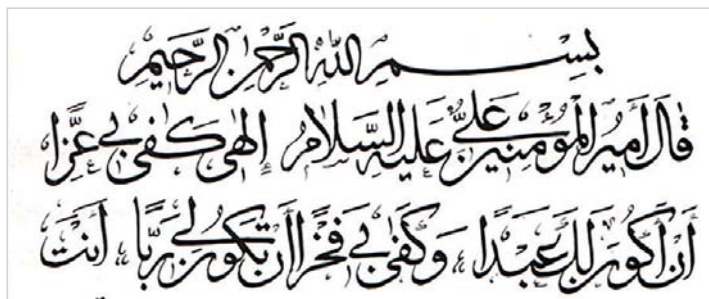 بِسْمِ اللهِ الرَّحْمٰنِ الرَّحِيمِ
قَالَ اَمِيرُ الْمُؤْمِنِينَ عَلِيٌّ عَلَيْهِ السَّلَامُ إِلٰهِي كَفٰى بِي عِزًّا
اَنْ اَكُونَ لَكَ عَبْدًا، وَكَفٰى بِي فَخْرًا اَنْ تَكُونَ لِي رَبًّا، اَنْتَ